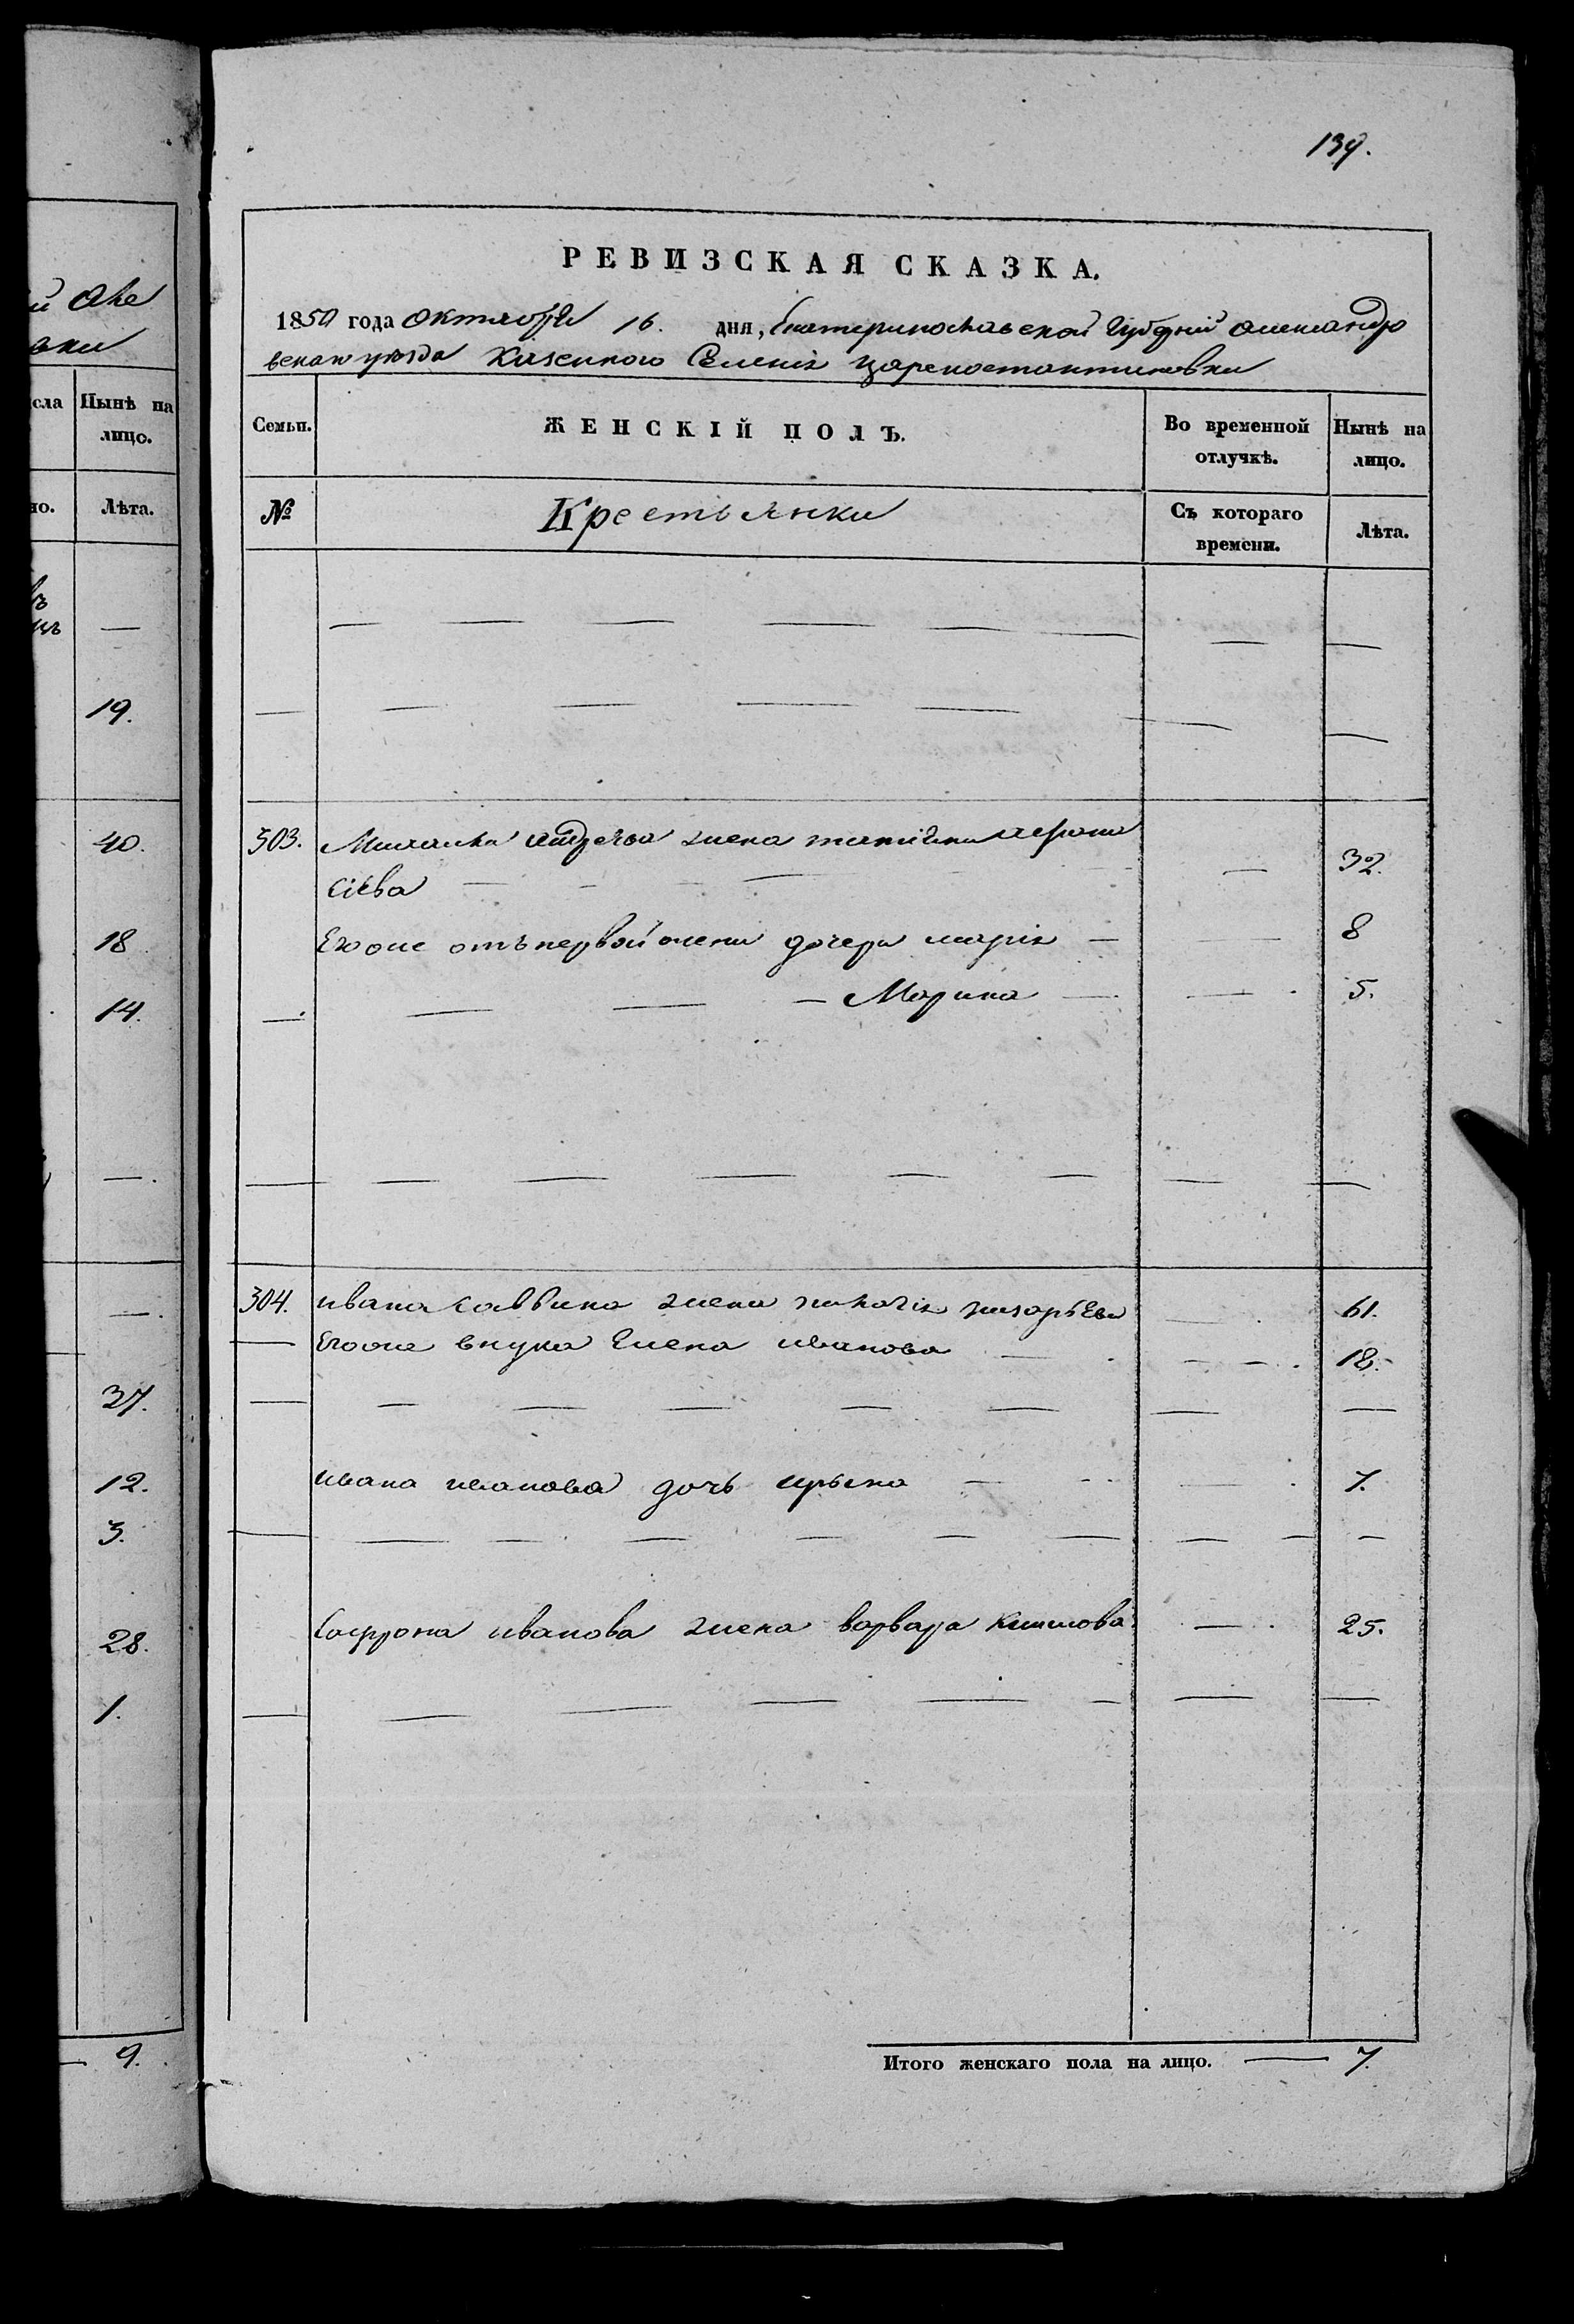 й Але
вки
сла
Нынѣ на
лицо.
но.
Лѣта.
19.
40.
18
14.
37.
12.
3.
28.
1.
9.
139.
РЕВИЗСКАЯ СКАЗКА.
1850 года Октября 16. дня, Екатеринославской Губернiй Александро
вскаго уѣзда Казенного Селенiя Цареконстантиновки
Семьи.
ЖЕНСКІЙ ПОЛЪ.
Во временной
отлучкѣ.
Нынѣ на
лицо.
№
Крестьянки
Съ котораго
времени.
Лѣта.
303. Михаила Андреева жена татiяна афона
сiева — 32.
Его оне отъ первой жены дочери марiя — 8
— Марина — 5.
304. ивана саввина жена Захарьева 61.
Его оне внука Елена иванова — 18.
ивана иванова дочь ирына — 7.
Софрона иванова жена варвара — 25.
Итого женскаго пола на лицо. — 7.